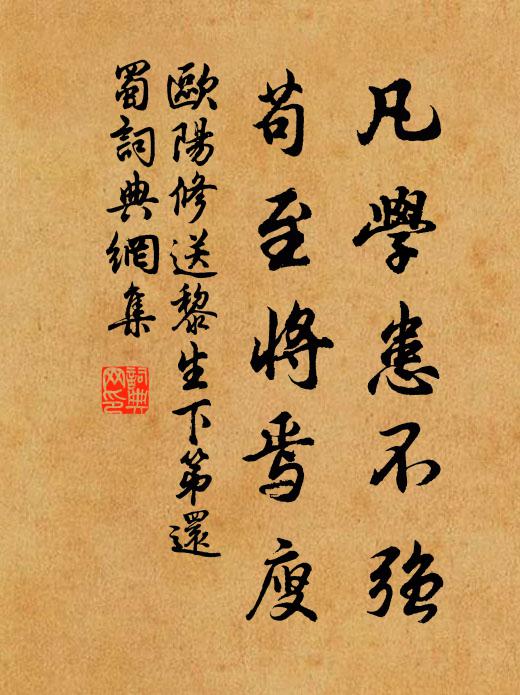 凡學患不強
苟至將焉廋
歐陽修送黎生下第還
蜀詞典網集
詞典網印